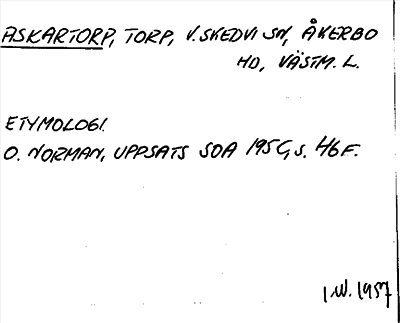 ASKARTORP, TORP, V. SKEDVI SN, ÅKERBO
HD, VÄSTM. L.
ETYMOLOGI.
O. NORMAN, UPPSATS SOA 1956, s. 46 F.
I.W. 1957